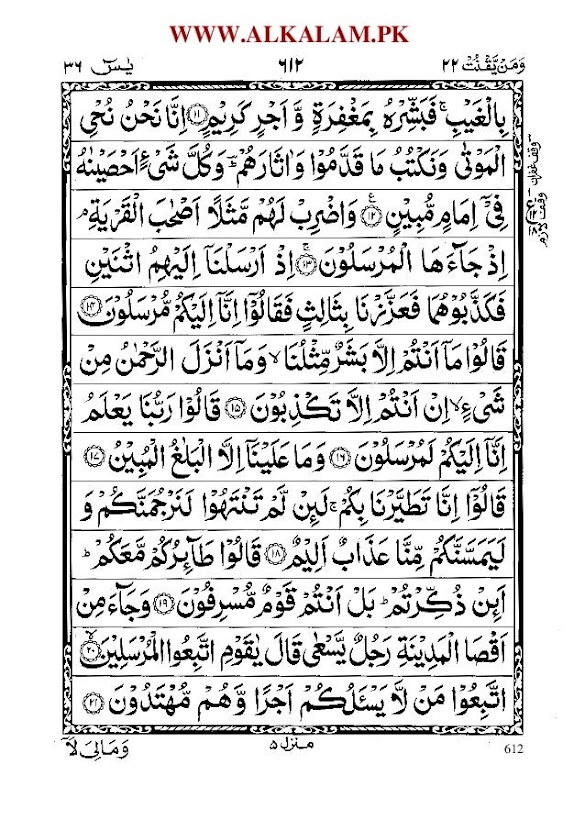 WWW.ALKALAM.PK
وَمَنْ يَّقْنُتْ ٢٢
٦١٢
يٰسٓ ٣٦
بِالْغَيْبِ ۚ فَبَشِّرْهُ بِمَغْفِرَةٍ وَّ اَجْرٍ كَرِيْمٍ ﴿۱۱﴾ اِنَّا نَحْنُ نُحْىِ
الْمَوْتٰى وَنَكْتُبُ مَا قَدَّمُوْا وَاٰثَارَهُمْ ؕ وَكُلَّ شَىْءٍ اَحْصَيْنٰهُ
فِىْٓ اِمَامٍ مُّبِيْنٍ ﴿۱۲﴾ وَاضْرِبْ لَهُمْ مَّثَلًا اَصْحٰبَ الْقَرْيَةِ ۘ
اِذْ جَآءَهَا الْمُرْسَلُوْنَ ﴿۱۳﴾ اِذْ اَرْسَلْنَاۤ اِلَيْهِمُ اثْنَيْنِ
فَكَذَّبُوْهُمَا فَعَزَّزْنَا بِثَالِثٍ فَقَالُوْۤا اِنَّاۤ اِلَيْكُمْ مُّرْسَلُوْنَ ﴿۱۴﴾
قَالُوْا مَاۤ اَنْتُمْ اِلَّا بَشَرٌ مِّثْلُنَا ۙ وَمَاۤ اَنْزَلَ الرَّحْمٰنُ مِنْ
شَىْءٍ ۙ اِنْ اَنْتُمْ اِلَّا تَكْذِبُوْنَ ﴿۱۵﴾ قَالُوْا رَبُّنَا يَعْلَمُ
اِنَّاۤ اِلَيْكُمْ لَمُرْسَلُوْنَ ﴿۱۶﴾ وَمَا عَلَيْنَاۤ اِلَّا الْبَلٰغُ الْمُبِيْنُ ﴿۱۷﴾
قَالُوْۤا اِنَّا تَطَيَّرْنَا بِكُمْ ۚ لَئِنْ لَّمْ تَنْتَهُوْا لَنَرْجُمَنَّكُمْ وَ
لَيَمَسَّنَّكُمْ مِّنَّا عَذَابٌ اَلِيْمٌ ﴿۱۸﴾ قَالُوْا طَآئِرُكُمْ مَّعَكُمْ ؕ
اَئِنْ ذُكِّرْتُمْ ؕ بَلْ اَنْتُمْ قَوْمٌ مُّسْرِفُوْنَ ﴿۱۹﴾ وَجَآءَ مِنْ
اَقْصَا الْمَدِيْنَةِ رَجُلٌ يَّسْعٰى قَالَ يٰقَوْمِ اتَّبِعُوا الْمُرْسَلِيْنَ ﴿۲۰﴾
اتَّبِعُوْا مَنْ لَّا يَسْئَلُكُمْ اَجْرًا وَّهُمْ مُّهْتَدُوْنَ ﴿۲۱﴾
وَمَالِىَ لَاۤ
منزل ۵
612